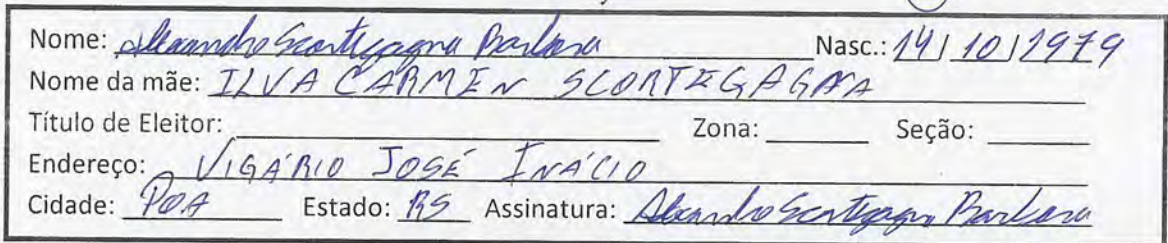 Nome: Alexandre Scortegagna Barbosa Nasc.: 14/10/1979
Nome da mãe: ILVA CARMEN SCORTEGAGNA
Título de Eleitor: Zona: Seção:
Endereço: VIGÁRIO JOSÉ INÁCIO
Cidade: POA Estado: RS Assinatura: Alexandre Scortegagna Barbosa